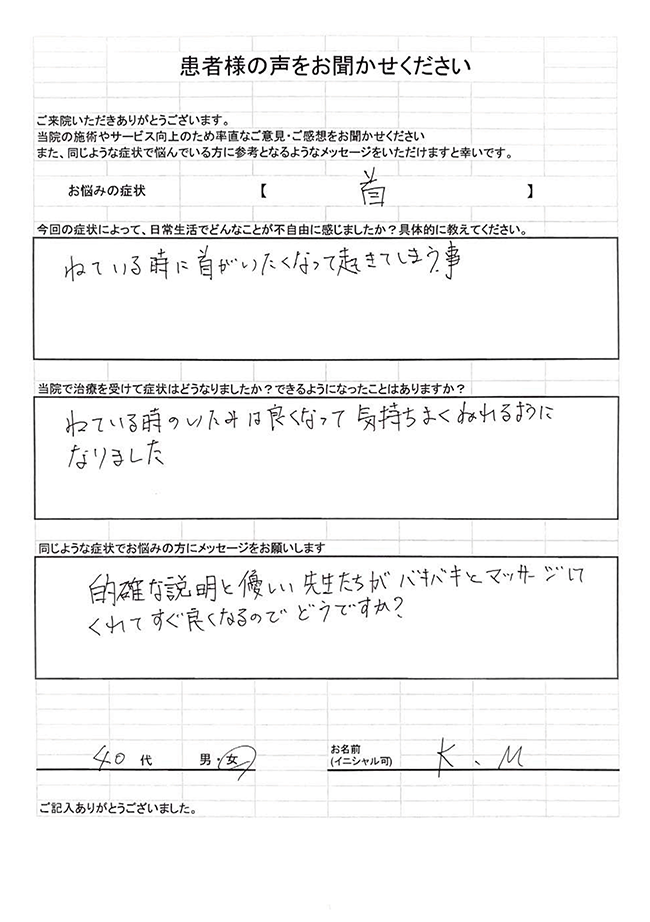 患者様の声をお聞かせください
ご来院いただきありがとうございます。
当院の施術やサービス向上のため率直なご意見・ご感想をお聞かせください
また、同じような症状で悩んでいる方に参考となるようなメッセージをいただけますと幸いです。
お悩みの症状 【 首 】
今回の症状によって、日常生活でどんなことが不自由に感じましたか?具体的に教えてください。
ねている時に首がいたくなって起きてしまう事
当院で治療を受けて症状はどうなりましたか?できるようになったことはありますか?
ねている時のいたみは良くなって気持ちよくねれるように
なりました
同じような症状でお悩みの方にメッセージをお願いします
的確な説明と優しい先生たちがバキバキとマッサージして
くれてすぐ良くなるのでどうですか?
40 代 男・女 お名前 K.M
(イニシャル可)
ご記入ありがとうございました。